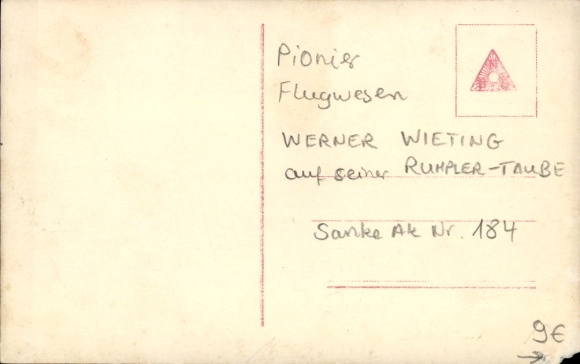 Pionier
Flugwesen
WERNER WIETING
auf seiner RUMPLER-TAUBE
Sanke Ak Nr. 184
9€